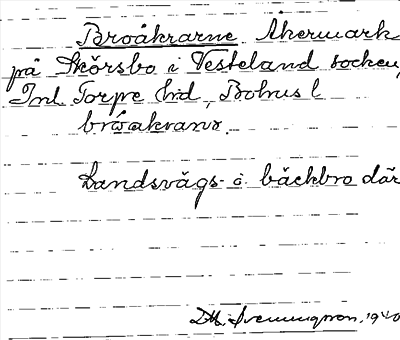 Broåkrarne Åkermark
på Skörsbo i Vesteland socken,
Inl Torpe hd, Bohus l
bråakrana.
Landsvägs- o. bäckbro där
D. H. Svenungsson, 1940